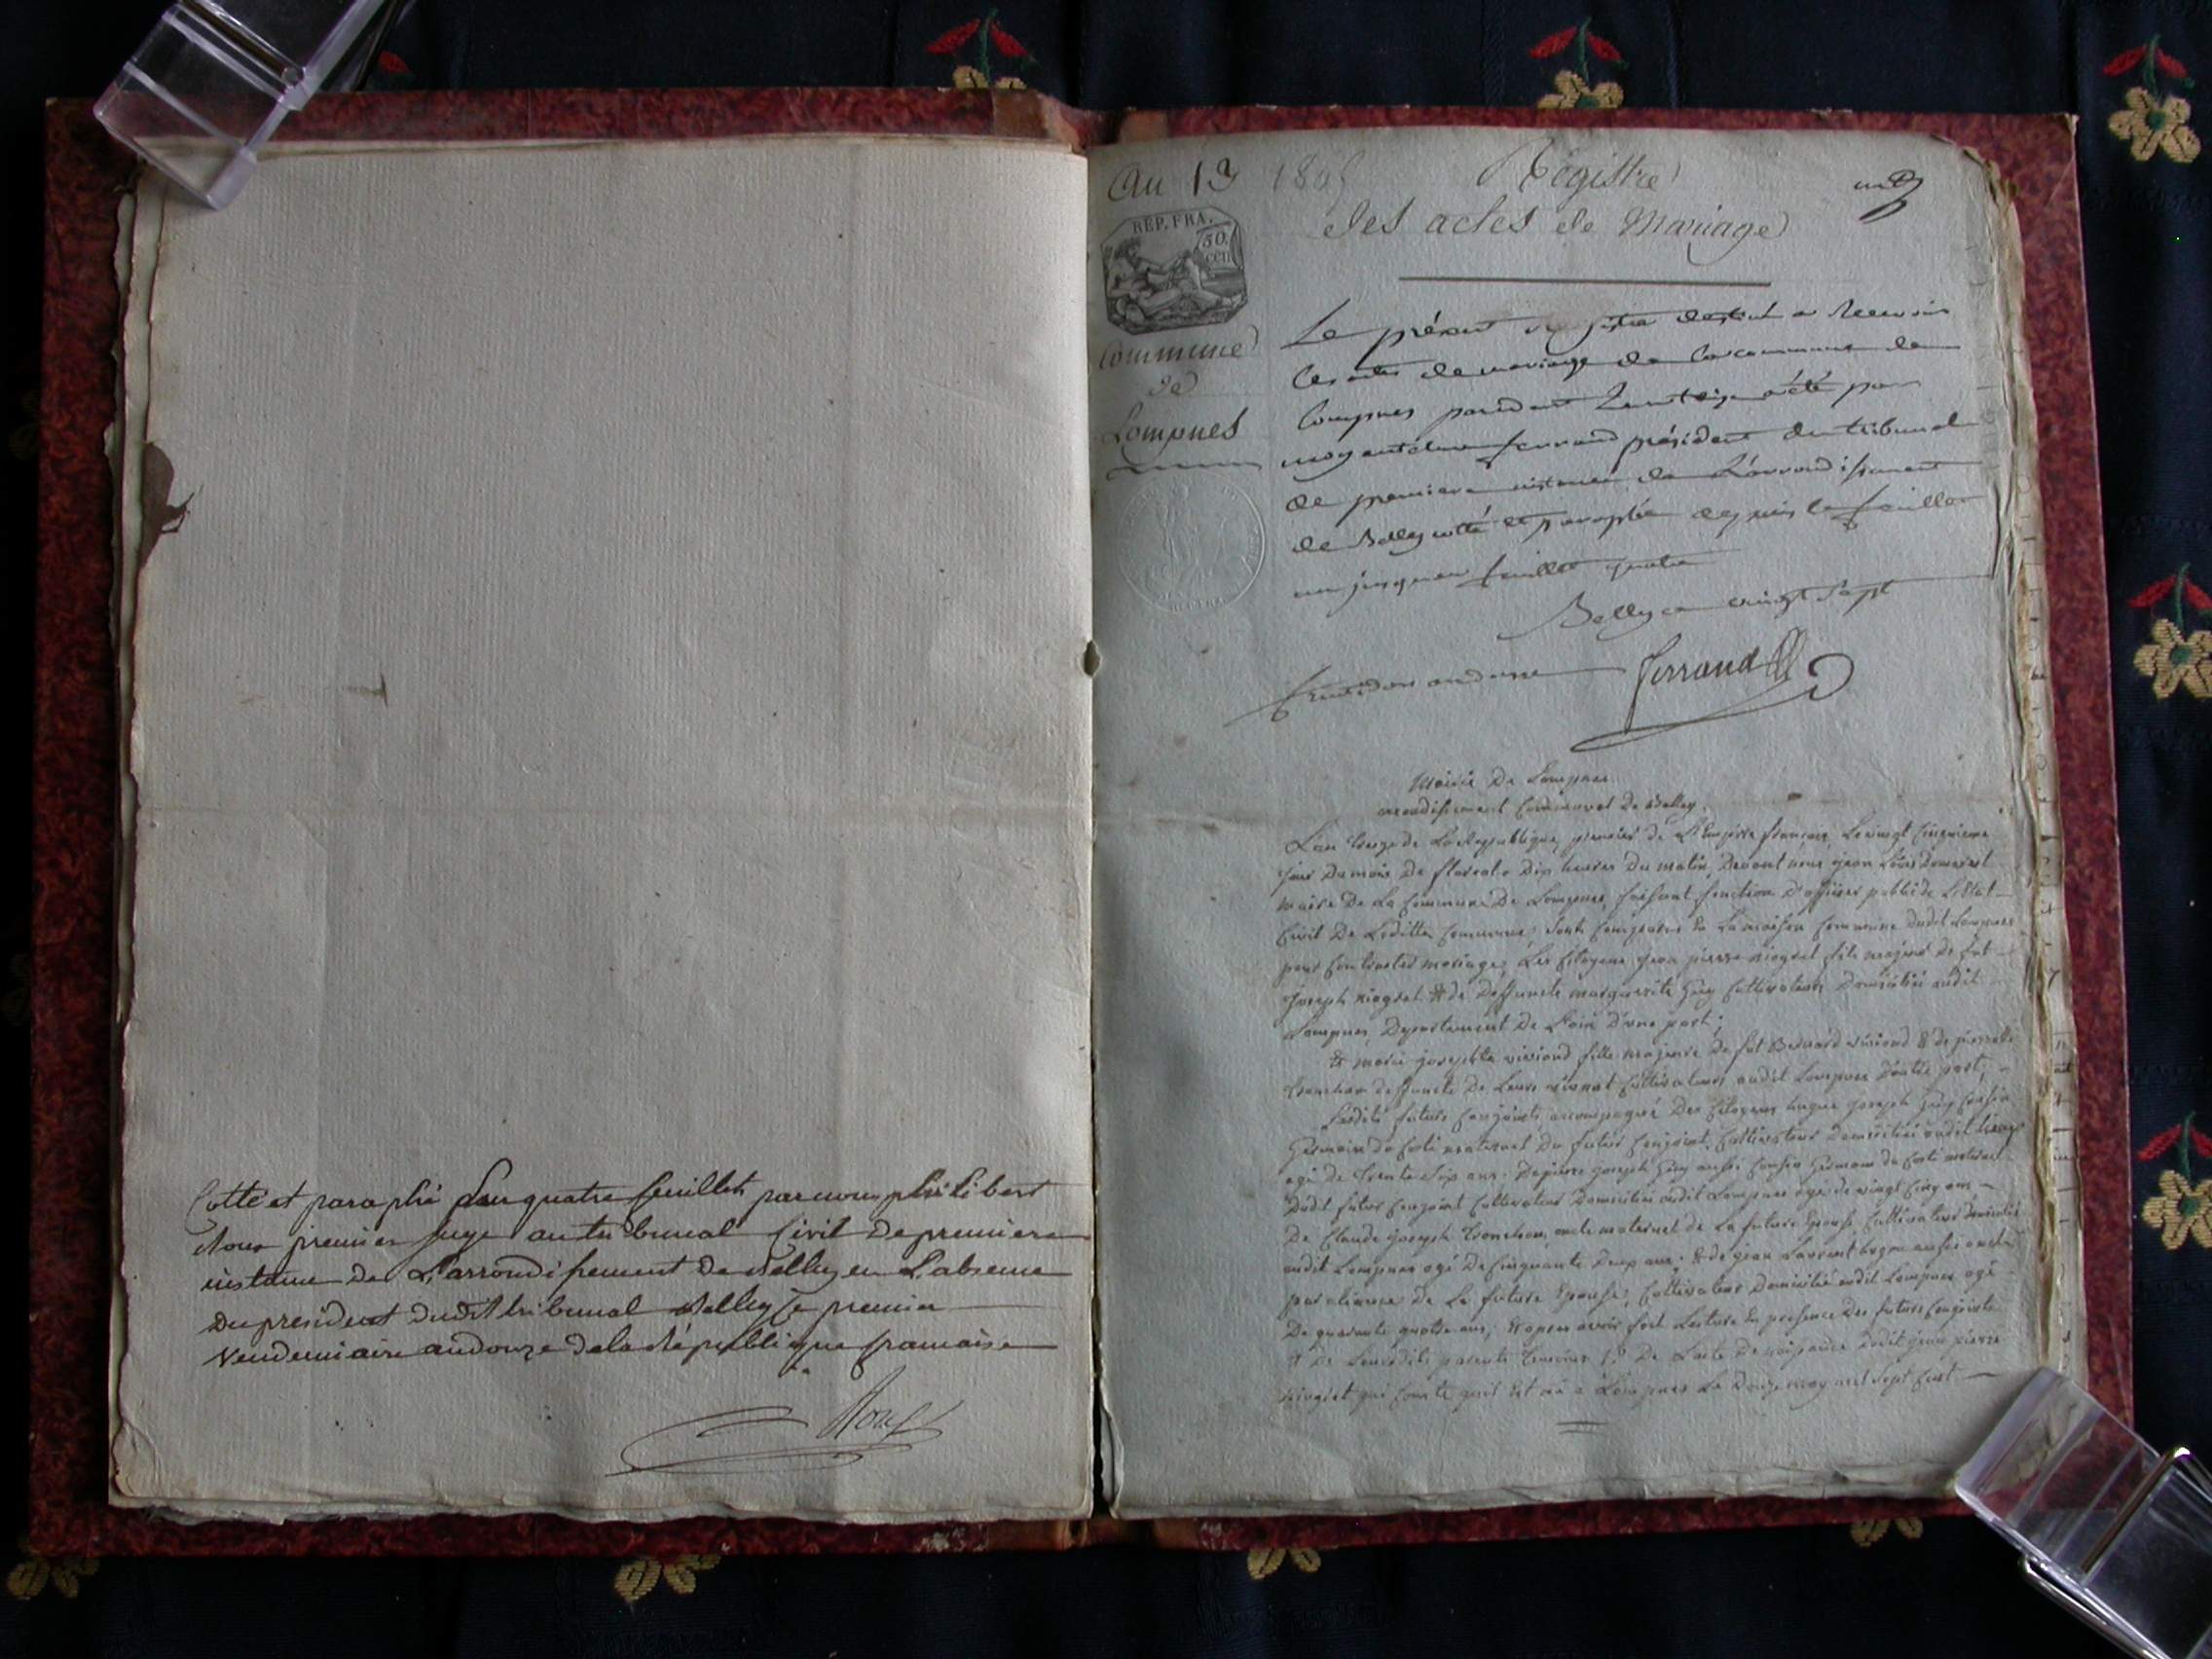 Cotté et paraphé Sur quatre feuillets par nous philibert
Roux premier juge au tribunal Civil De premiere
instance de L'arrondissement de Belley en L'absence
Du president Dudit tribunal Belley ce premier
Vendemiaire an douze de la République francaise
Roux
An 13 1805
Régistre
des actes de Mariage
un
RÉP. FRA.
50
cen
Commune
de
Lompnes
Le présent registre destiné a recevoir
les actes de mariage de la commune de
Lompnes pendant l'an treize a été par
moy ferrand président du tribunal
de premiere instance de L'arrondissement
de Belley cotté et paraphé depuis le feuillet
un jusqu'au feuillet quatre
Belley ce vingt Sept
fructidor an douze ferrand
Mairie De Lompnes
arrondissement Communal De Belley.
L'an treize de La Republique, premier de L'Empire français, Le vingt Cinquieme
jour Du mois De floreal a Dix heures Du matin, Devant nous jean Louis
maire De La Commune De Lompnes, faisant fonction D'officier public de L'Etat
Civil De Laditte Commune, Sont Comparus En La maison Commune dudit Lompnes
pour Contracter mariage, Les Citoyens jean pierre fils majeur De fut
joseph & de Deffuncte marguerite Guy Cultivateur Domicilié audit
Lompnes, Departement De L'ain D'une part;
& marie josephte fille majeure De fut Bernard & de pierrette
Tronchon deffuncte De Leurs vivant Cultivateurs audit Lompnes D'autre part,
Lesdits futurs Conjoints, accompagné Des Citoyens joseph Guy Cousin
Germain du Coté maternel Du futur Conjoint, Cultivateur Domicilié audit Lieu
agé de Trente Six ans; De pierre joseph Guy aussi Cousin Germain du Coté maternel
Dudit futur Conjoint Cultivateur Domicilié audit Lompnes agé de vingt Cinq ans,
De Claude joseph Tronchon, oncle maternel de La future Epouse, Cultivateur Domicilié
audit Lompnes agé De Cinquante Deux ans; & de jean Laurent aussi oncle
par aliance de La future Epouse, Cultivateur Domicilié audit Lompnes agé
De quarante quatre ans; & apres avoir fait Lecture En presence Des futurs Conjoints
& De Leursdits parents Temoins 1° De L'acte De naissance dudit jean pierre
qui Conste qu'il Est né a Lompnes Le Douze may mil Sept Cent